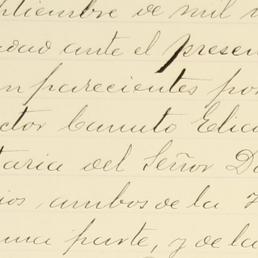 ptiembre de mil
edad ante el presen
mparecientes por
ctor Canuto Elic
taria del Señor Do
ios ambos de la
una parte, y de la